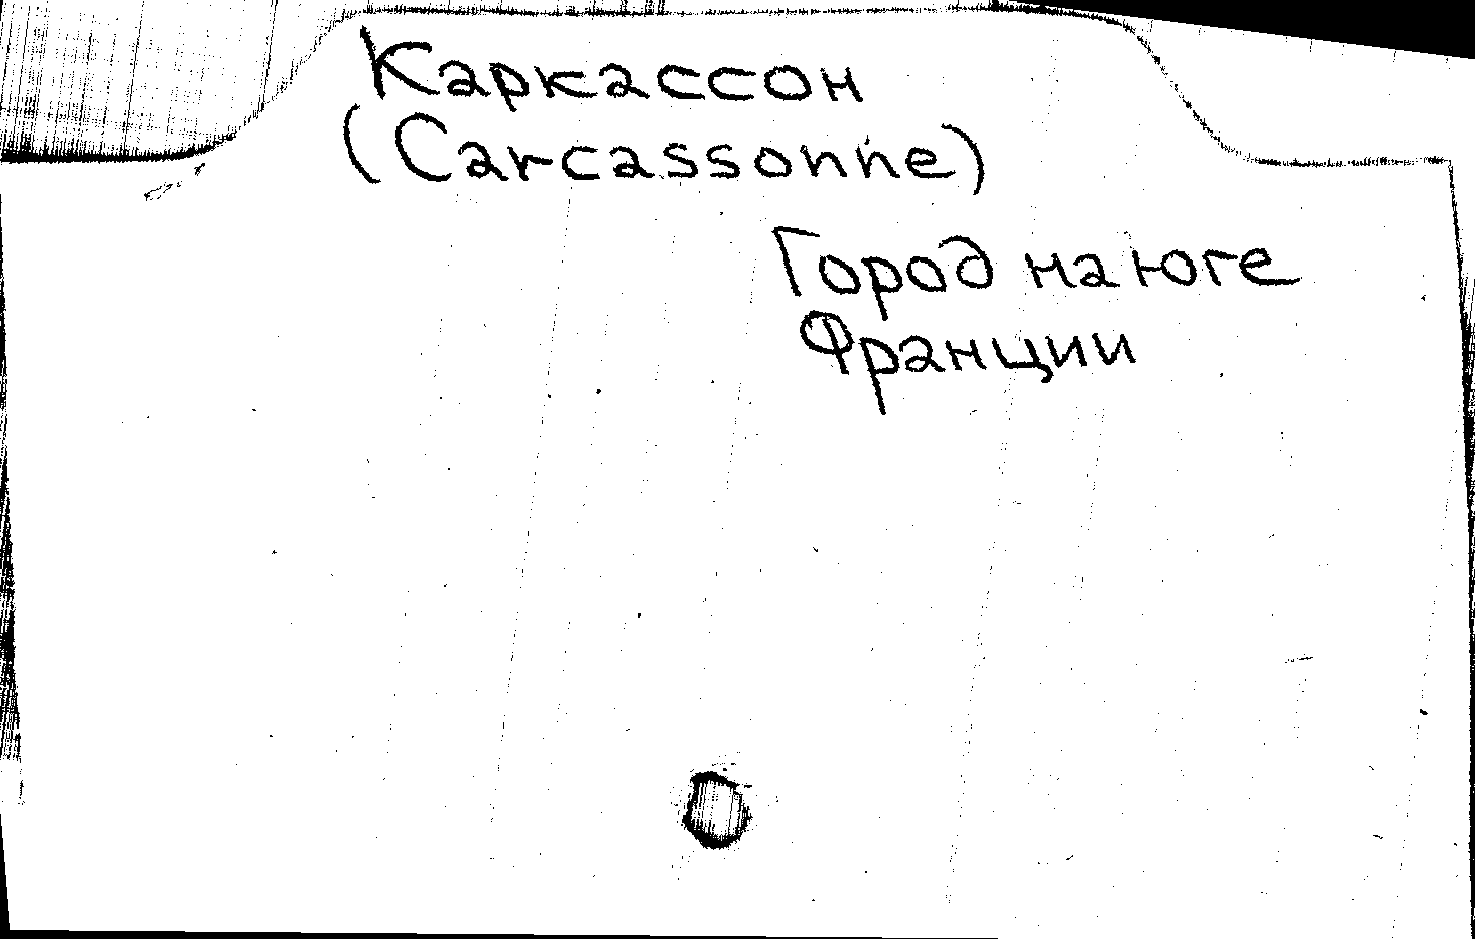 Каркассон
(Carcassonne)
Город на юге
Франции